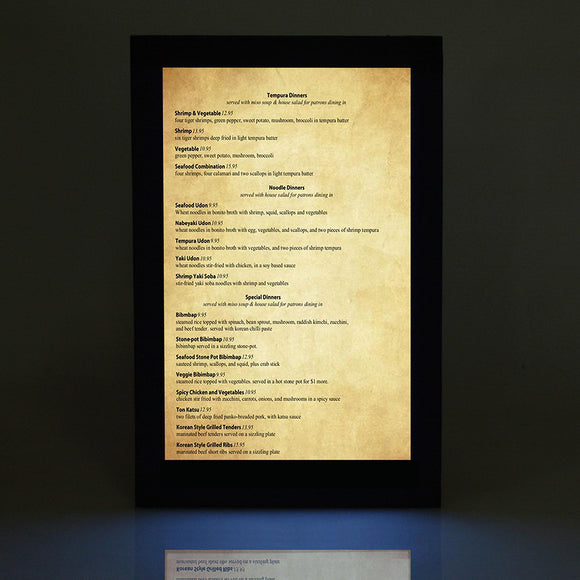 Tempura Dinners
served with miso soup & house salad for patrons dining in
Shrimp & Vegetable 12.95
four tiger shrimps, green pepper, sweet potato, mushroom, broccoli in tempura batter
Shrimp 13.95
six tiger shrimps deep fried in light tempura batter
Vegetable 10.95
green pepper, sweet potato, mushroom, broccoli
Seafood Combination 15.95
four shrimps, four calamari and two scallops in light tempura batter
Noodle Dinners
served with house salad for patrons dining in
Seafood Udon 9.95
Wheat noodles in bonito broth with shrimp, squid, scallops and vegetables
Nabeyaki Udon 10.95
wheat noodles in bonito broth with egg, vegetables, and scallops, and two pieces of shrimp tempura
Tempura Udon 9.95
wheat noodles in bonito broth with vegetables, and two pieces of shrimp tempura
Yaki Udon 10.95
wheat noodles stir-fried with chicken, in a soy based sauce
Shrimp Yaki Soba 10.95
stir-fried yaki soba noodles with shrimp and vegetables
Special Dinners
served with miso soup & house salad for patrons dining in
Bibmbap 9.95
steamed rice topped with spinach, bean sprout, mushroom, raddish kimchi, zucchini,
and beef tender. served with korean chilli paste
Stone-pot Bibimbap 10.95
bibimbap served in a sizzling stone-pot.
Seafood Stone Pot Bibimbap 12.95
sauteed shrimp, scallops, and squid, plus crab stick
Veggie Bibimbap 9.95
steamed rice topped with vegetables. served in a hot stone pot for $1 more.
Spicy Chicken and Vegetables 10.95
chicken stir fried with zucchini, carrots, onions, and mushrooms in a spicy sauce
Ton Katsu 12.95
two filets of deep fried panko-breaded pork, with katsu sauce
Korean Style Grilled Tenders 13.95
marinated beef tenders served on a sizzling plate
Korean Style Grilled Ribs 15.95
marinated beef short ribs served on a sizzling plate